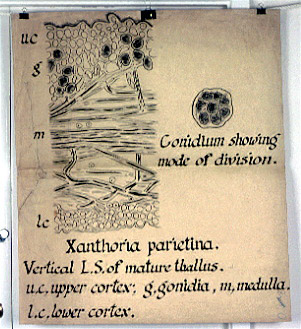 u.c
g
m
Gonidium showing
mode of division.
l.c
Xanthoria parietina.
Vertical L.S. of mature thallus.
u.c, upper cortex; g, gonidia, m, medulla.
l.c, lower cortex.